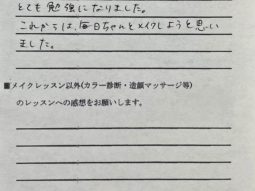 とても勉強になりました。
これからは、毎日ちゃんとメイクしようと思い
ました。
■メイクレッスン以外(カラー診断・造顔マッサージ等)
のレッスンへの感想をお願いします。